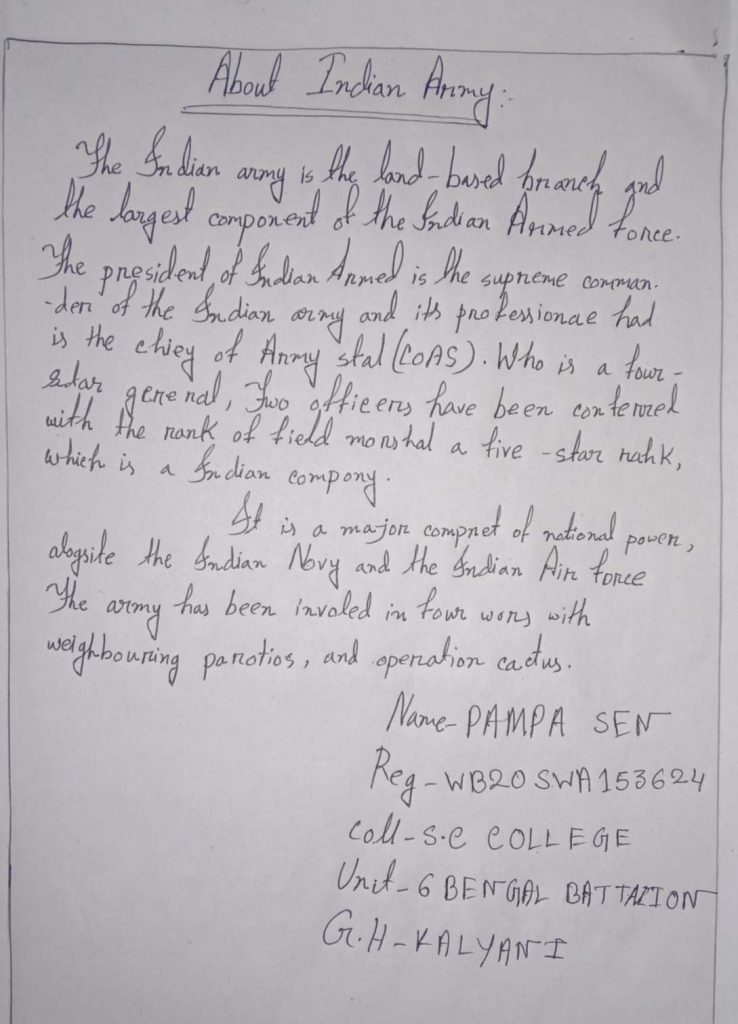 About Indian Army:-
The Indian army is the land-based branch and
the largest component of the Indian Armed force.
The president of Indian Armed is the supreme comman-
-der of the Indian army and its professionae had
is the chiey of Army stal (COAS). Who is a four-
star general, Two officers have been conferred
with the rank of field morshal a five-star rahk,
which is a Indian compony.
It is a major compnet of national power,
alogsite the Indian Novy and the Indian Air force
The army has been involed in four wors with
weighbouring parotios, and operation cactus.
Name- PAMPA SEN
Reg - WB20 SWA 153624
Coll - S.C COLLEGE
Unit - 6 BENGAL BATTALION
G.H - KALYANI